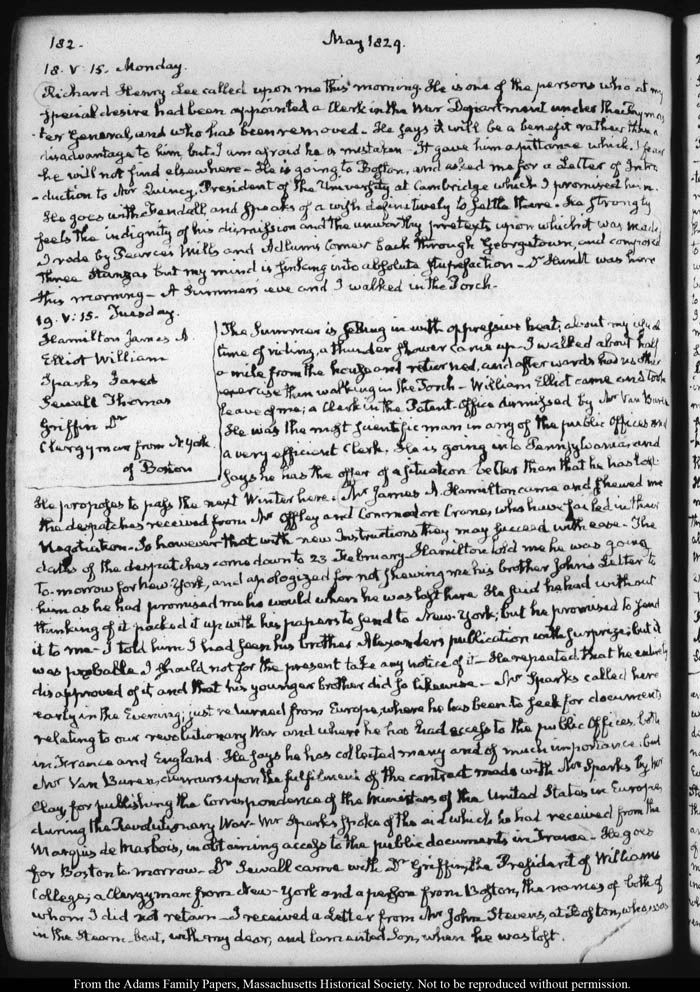 182.
May 1829.
18. V. 15. Monday.
Richard Henry Lee called upon me this morning. He is one of the persons who at my
special desire had been appointed a Clerk in the War Department under the Paymas
-ter General, and who has been removed. He says it will be a benefit rather than a
disadvantage to him, but I am afraid he is mistaken. It gave him a pittance which I fear
he will not find elsewhere. He is going to Boston, and asked me for a Letter of Intro
-duction to Mr Quincy, President of the University at Cambridge which I promised him.
He goes with Tendall, and speaks of a wish definitively to settle there. He strongly
feels the indignity of his dismission and the unworthy pretexts upon which it was made.
I rode by Pearces Mills and Adlums Corner back through Georgetown, and composed
three Stanzas but my mind is sinking into absolute stupefaction. Dr Huntt was here
this morning. A Summers eve and I walked in the Porch.
19. V: 15. Tuesday.
Hamilton James A.
Elliot William
Sparks Jared
Sewall Thomas
Griffin Dr
Clergyman from N. York
of Boston
The Summer is setting in with oppressive heat; about my usual
time of riding, a thunder shower came up. I walked about half
a mile from the house and returned, and afterwards had no other
exercise than walking in the Porch. William Elliot came and took
leave of me; a Clerk in the Patent-Office dismissed by Mr Van Buren
He was the most scientific man in any of the public Offices and
a very efficient Clerk. He is going into Pennsylvania and
says he has the offer of a situation better than that he has lost.
He proposes to pass the next Winter here. Mr James A. Hamilton came and shewed me
the despatches received from Mr Offley and Commodore Crane, who have failed in their
Negotiation. So however that with new Instructions they may succeed with ease. The
dates of the despatches come down to 23 February. Hamilton told me he was going
to-morrow for New York, and apologized for not shewing me his brother Johns Letter to
him as he had promised me he would when he was last here. He said he had without
thinking of it packed it up with his papers to send to New-York; but he promised to send
it to me. I told him I had seen his brother Alexanders publication with surprize; but it
was probable I should not for the present take any notice of it. He repeated that he entirely
disapproved of it and that his younger brother did so likewise. Mr Sparks called here
early in the Evening; just returned from Europe, where he has been to seek for documents
relating to our revolutionary War and where he has had access to the public Offices, both
in France and England. He says he has collected many and of much importance; but
Mr Van Buren, demurs upon the fulfilment of the contract made with Mr Sparks by Mr
Clay, for publishing the Correspondence of the Ministers of the United States in Europe,
during the Revolutionary War. Mr Sparks spoke of the aid which he had received from the
Marquis de Marbois, in obtaining access to the public documents in France. He goes
for Boston to-morrow. Dr Sewall came with Dr Griffin, the President of Williams
College; a Clergyman from New-York and a person from Boston, the names of both of
whom I did not retain. I received a Letter from Mr John Stevens, at Boston, who was
in the Steam-boat, with my dear, and lamented Son, when he was lost.
From the Adams Family Papers, Massachusetts Historical Society. Not to be reproduced without permission.